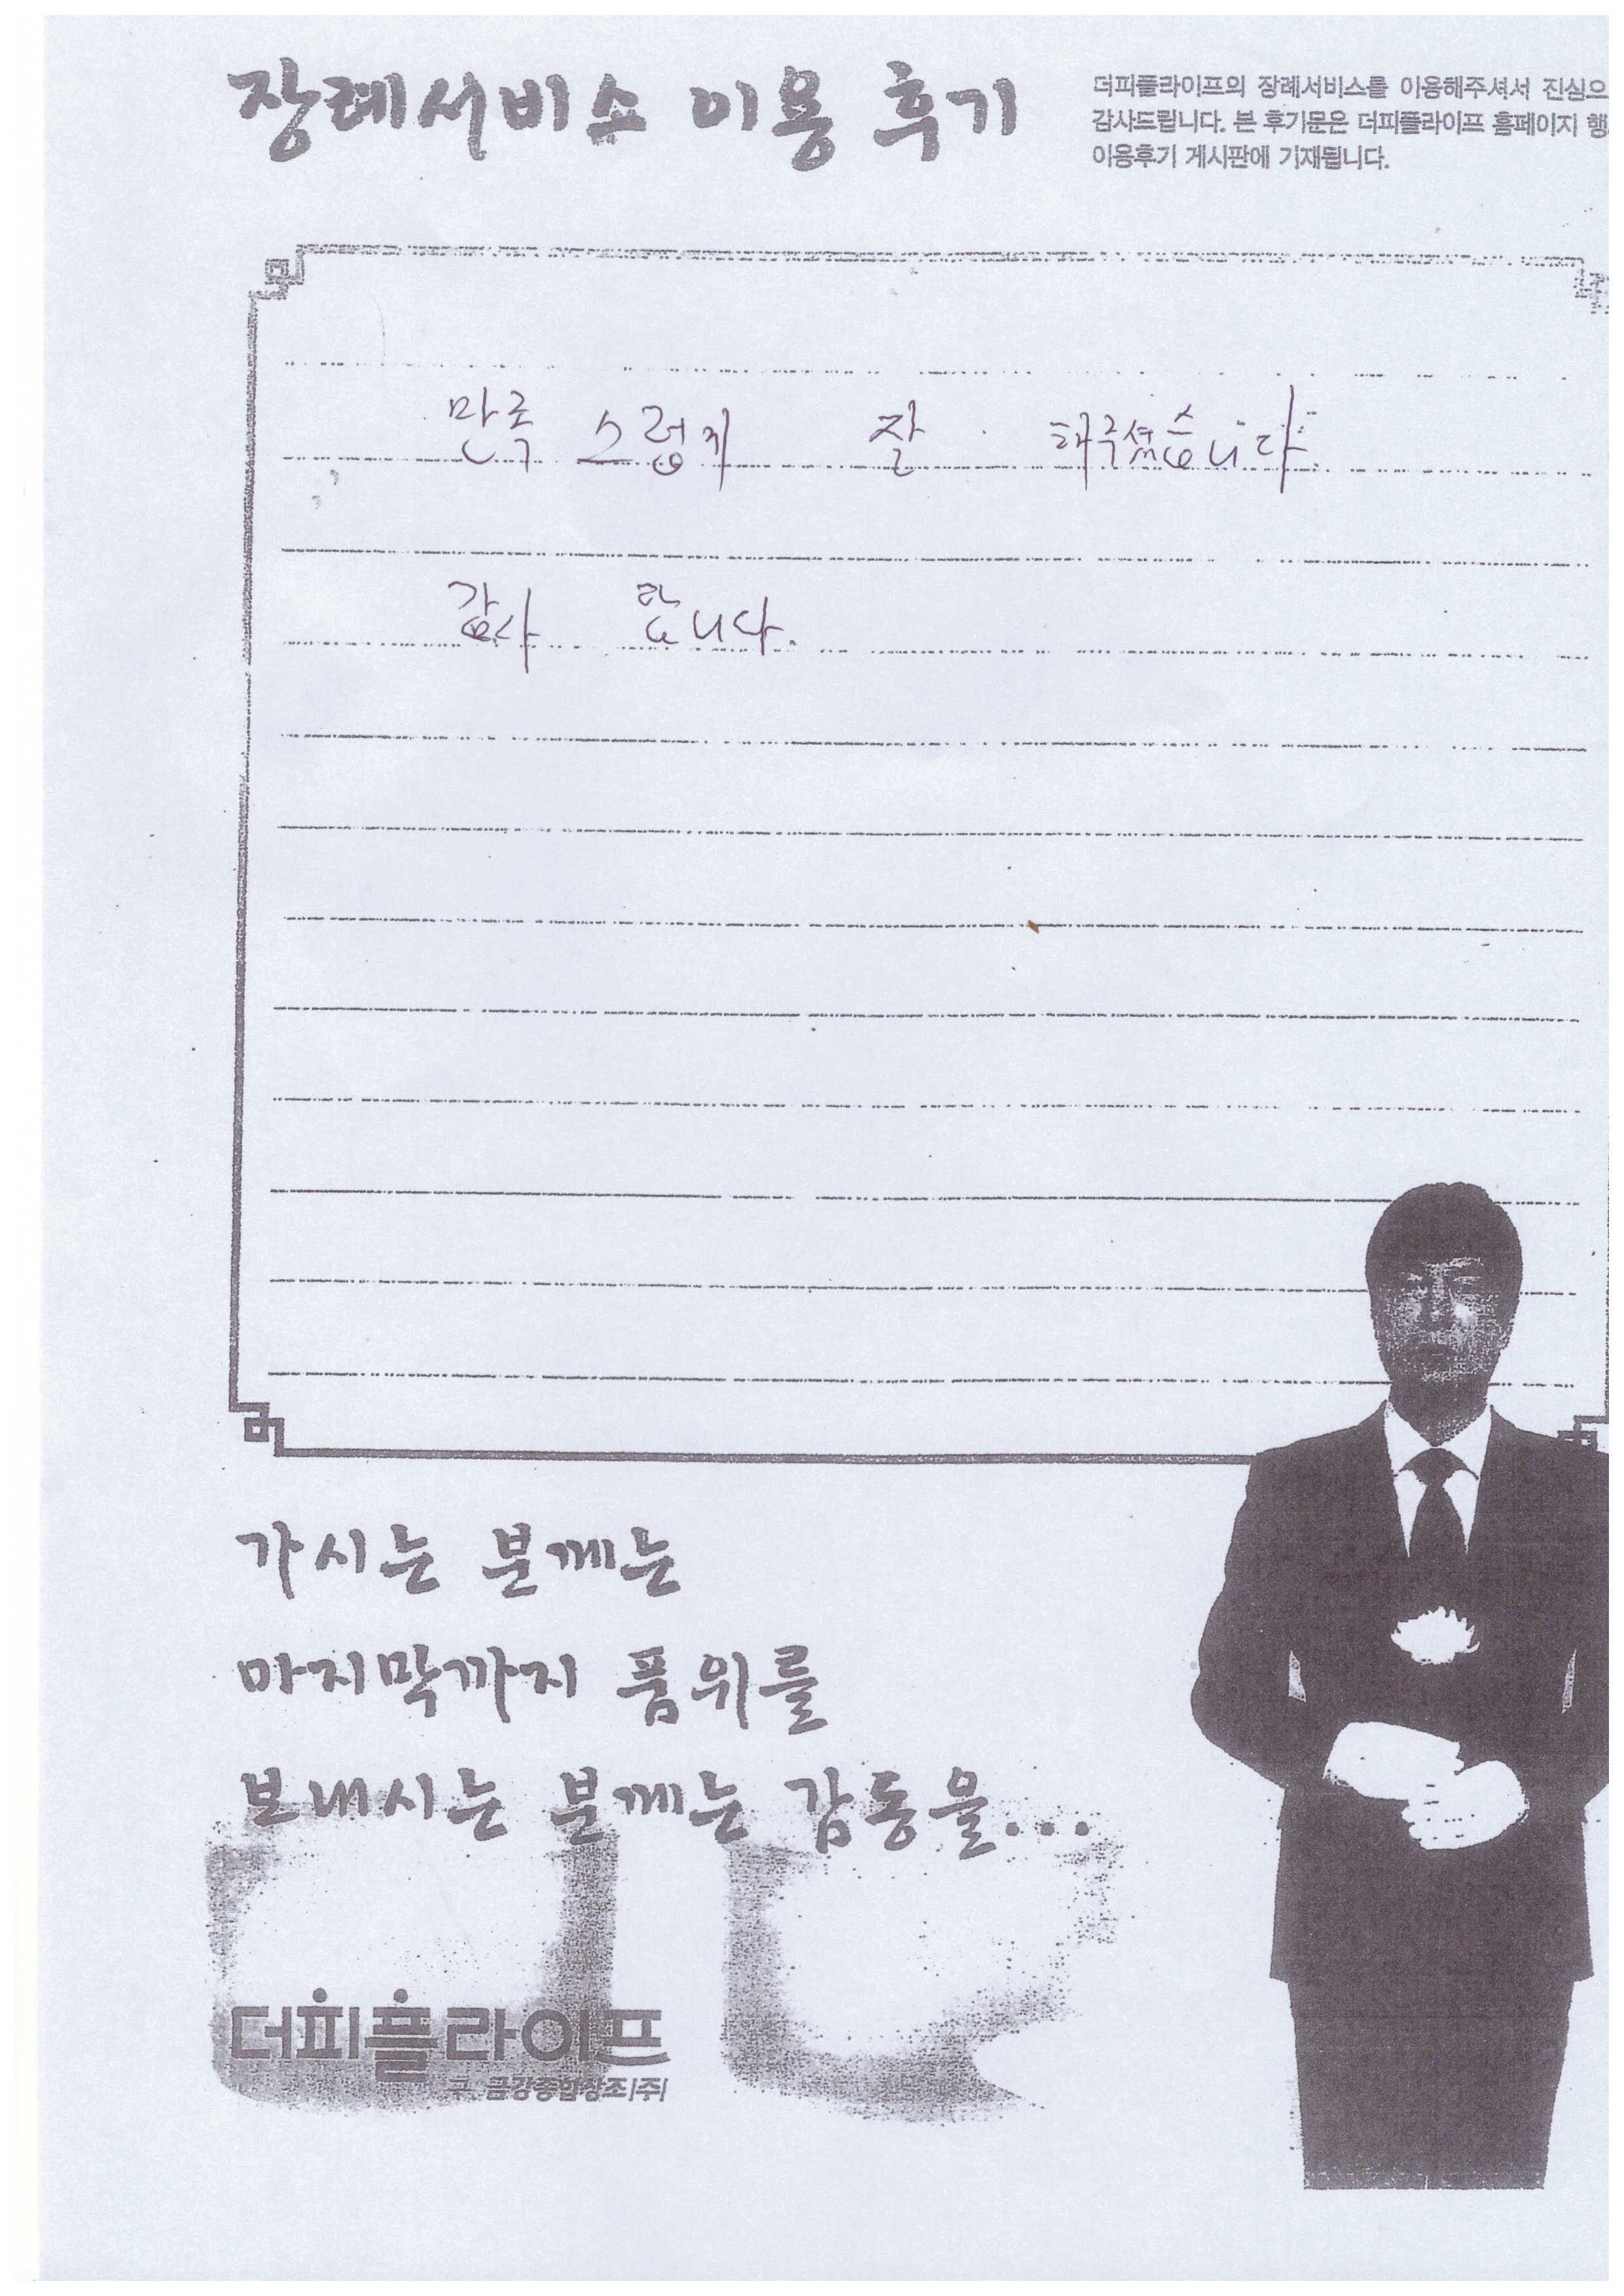 장례서비스 이용 후기
더피플라이프의 장례서비스를 이용해주셔서 진심으
감사드립니다. 본 후기문은 더피플라이프 홈페이지 행
이용후기 게시판에 기재됩니다.
만족 스럽게 잘 해주셨습니다.
감사 합니다.
가시는 분께는
마지막까지 품위를
보내시는 분께는 감동을...
더피플라이프
구. 금강종합상조(주)